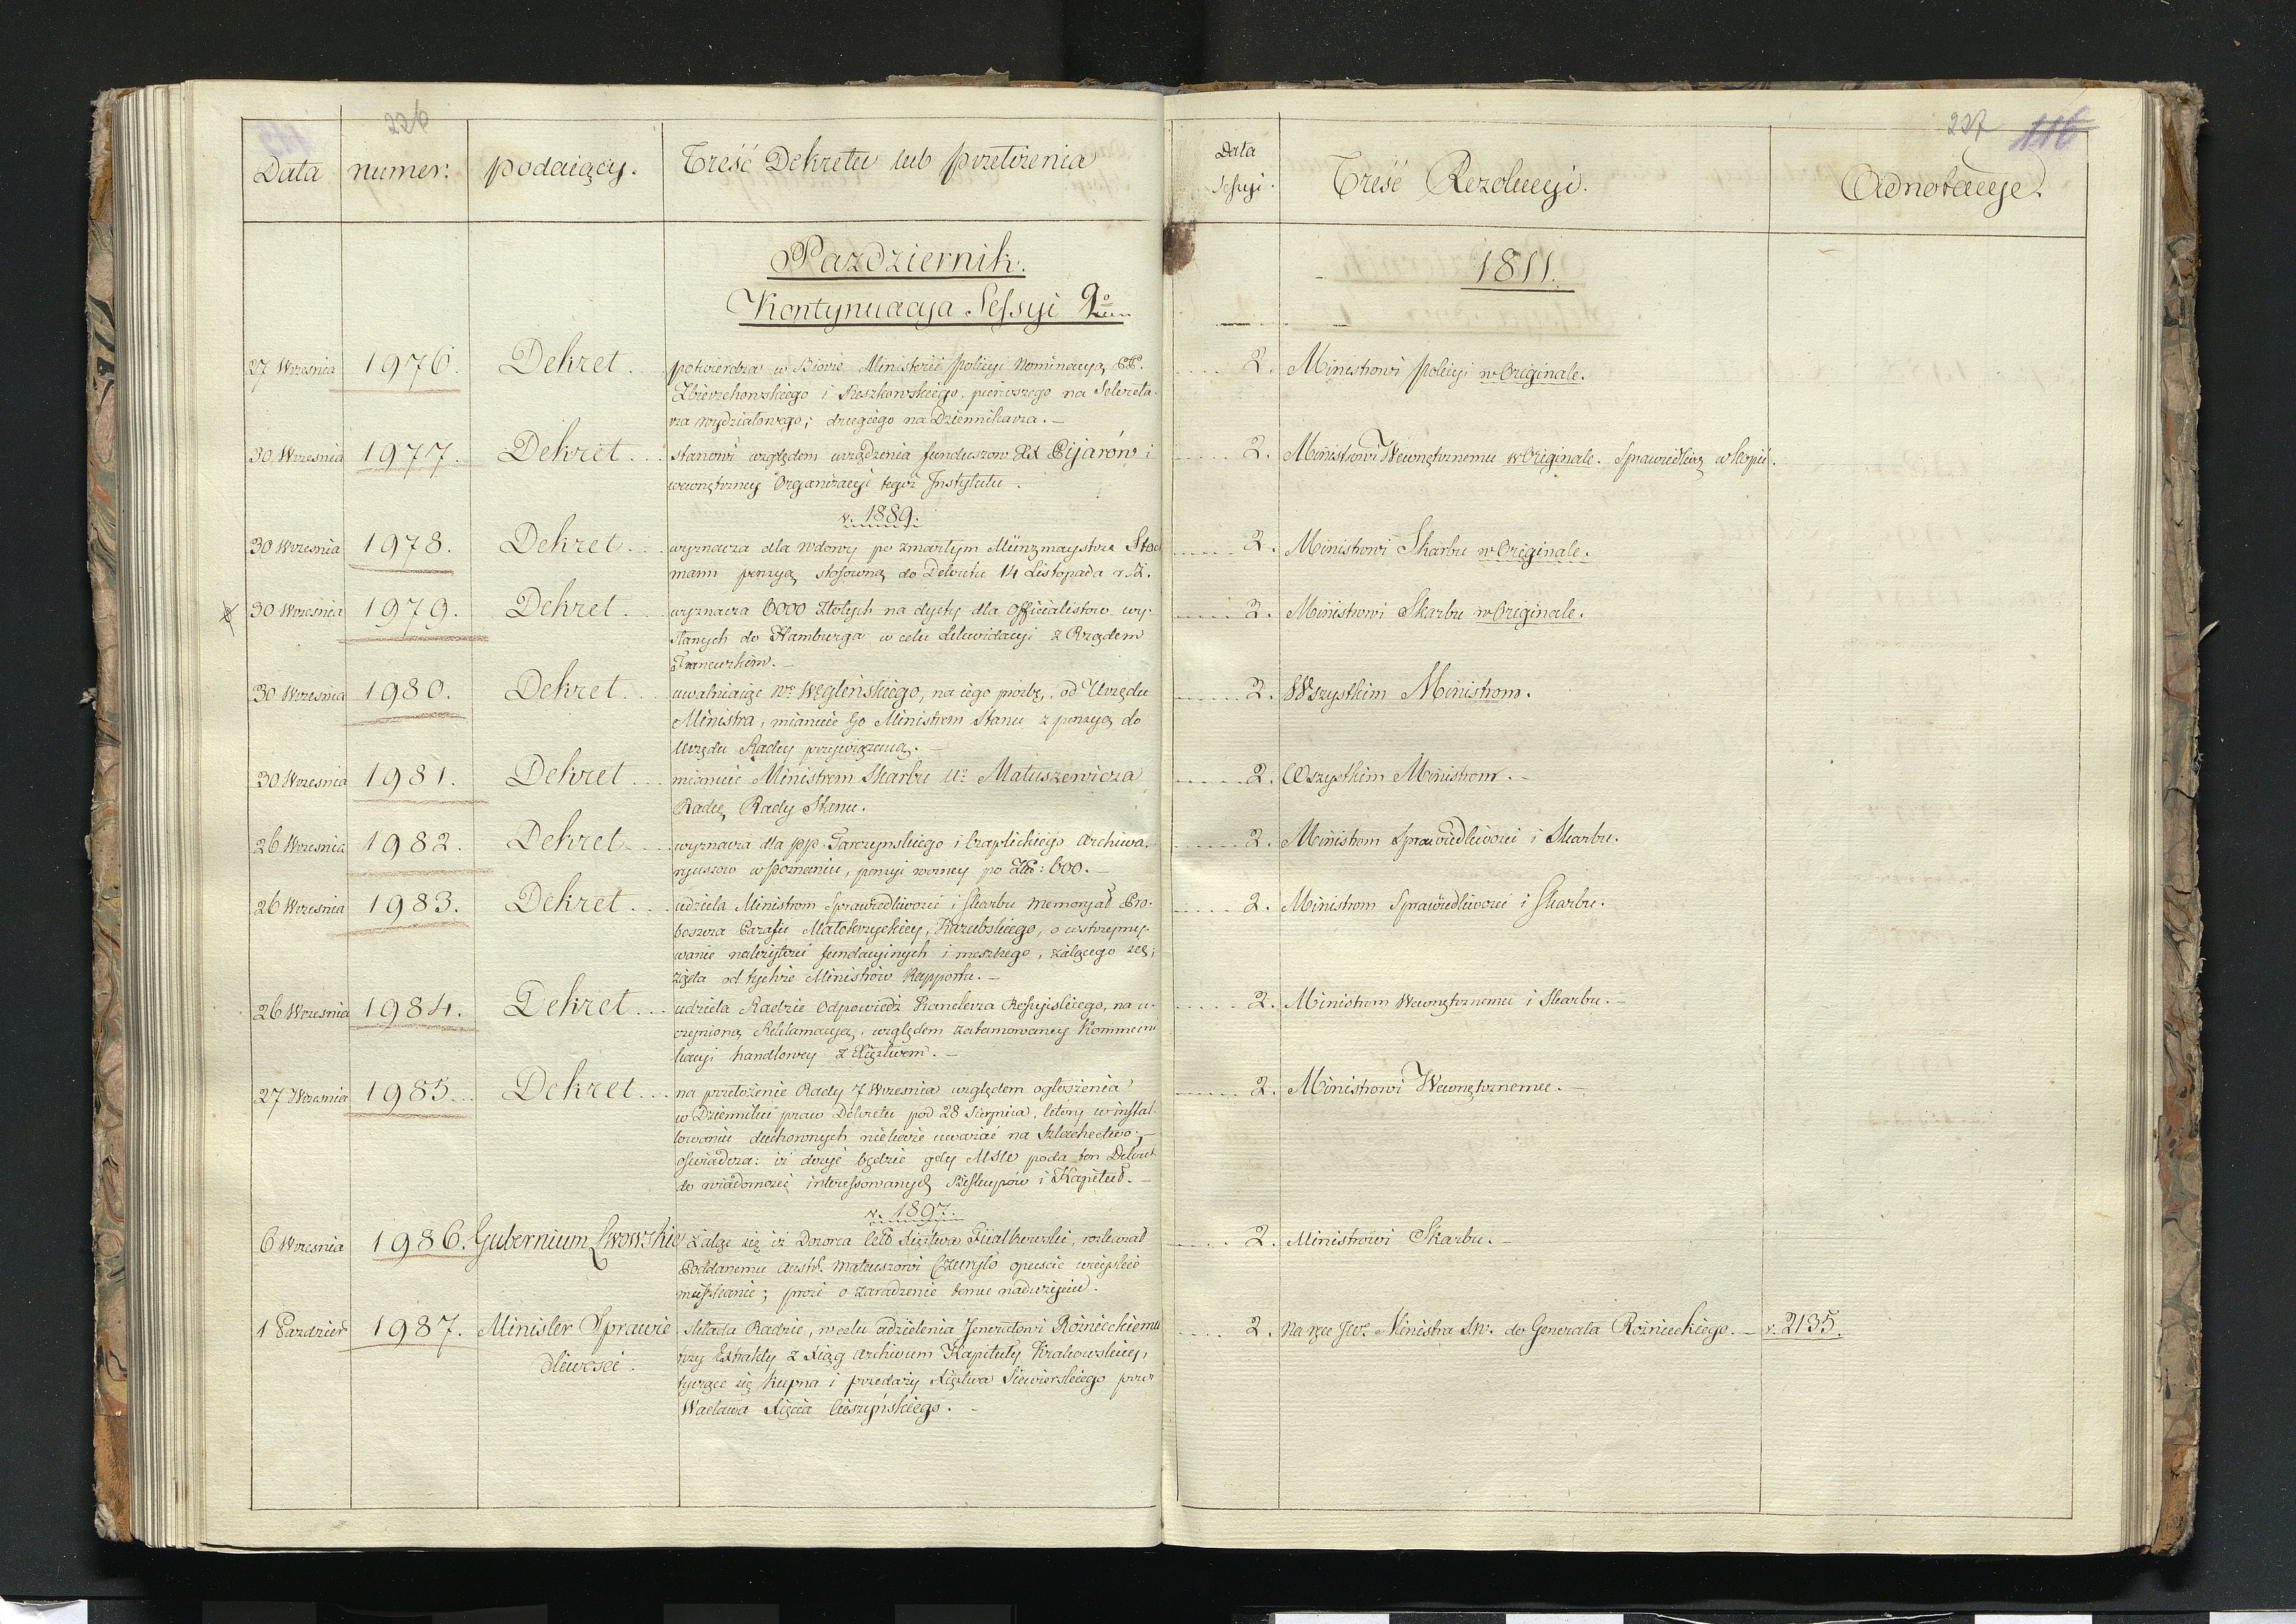 226
Data numer. podaiący. Treść Dekretu lub przełożenia
Pazdziernik.
Kontynuacya Sessyi 2º
27 Wrzesnia 1976. Dekret potwierdza w Biorze Ministrii policyi Nominacyą PP.
Zbierzchowskiego i Reszkowskiego, pierwszego na Sekreta-
rza wydziałowego; drugiego na Dziennikarza.
30 Wrzesnia 1977. Dekret stanowi względem urządzenia funduszow XX Pijarów i
wewnętrzney Organizacyi tegoż Instytutu.
v. 1889.
30 Wrzesnia 1978. Dekret wyznacza dla wdowy po zmarłym Münzmaystrze
mann pensyą stosowną do Dekretu 14 Listopada r. z.
30 Wrzesnia 1979. Dekret wyznacza 6000 Złotych na dyety dla Officialistow wy-
słanych do Hamburga w celu likwidacyi z Rządem
Francuzkim.
30 Wrzesnia 1980. Dekret uwalniaiąc Wº Węgleńskiego, na iego prożbę, od Urzędu
Ministra, mianuie Go Ministrem Stanu z pensyą do
Urzędu Radcy przywiązaną.
30 Wrzesnia 1981. Dekret mianuie Ministrem Skarbu Uº Matuszewicza
Radcę Rady Stanu.
26 Wrzesnia 1982. Dekret wyznacza dla pp. Tarczynskiego i Czaplickiego Archiwa-
ryuszow w Poznaniu, pensyi roczney po Złt: 600.
26 Wrzesnia 1983. Dekret udziela Ministrom Sprawiedliwosci i Skarbu memoryał Pro-
boszcza Parafii Małokrzyckiey, Kazubskiego, o wstrzymy-
wanie należytosci fundacyinych i meszkego, żalącego się;
żąda od tychże Ministrów Rapportu.
26 Wrzesnia 1984. Dekret udziela Radzie Odpowiedź Kanclerza Rossyiskiego, na u-
czynioną Reklamacyą, względem zatamowaney Kommuni
kacyi handlowey z Xięstwem.
27 Wrzesnia 1985. Dekret na przełożenie Rady 7 Wrzesnia względem ogłoszenia
w Dzienniku praw Dekretu pod 28 Sierpnia, który w instal-
lowaniu duchownych nie każe uważać na Szlachectwo;
oswiadcza: iż dosyć będzie gdy MSW poda ten Dekret
do wiadomosci interessowanych Biskupów i Kapituł.
v. 1897.
6 Wrzesnia 1986. Gubernium Lwowskie Żaląc się iż Dozorca Ceł Xięstwa Fiiałkowski, rozkazał
Poddanemu Austr. Mateuszowi Czuryło opuścic wieyskie
mieszkanie; prosi o zaradzenie temu nadużyciu.
1 Pazdzier 1987. Minister Sprawie- składa Radzie, w celu udzielenia Jenerałowi Rożnieckiemu
dliwosci. trzy Extrakty z Xiąg Archiwum Kapituły Krakowskiey,
tyczące się kupna i przedaży Xięstwa Siewierskiego przez
Wacława Xięcia Cieszyńskiego.
227 116
Data
Sessyi. Treść Rezolucyi. Adnotacye.
1811.
2. Ministrowi policyi w Originale.
2. Ministrowi Wewnętrznemu w Originale. Sprawiedliwo w kopii.
2. Ministrowi Skarbu w Originale.
2. Ministrowi Skarbu w Originale.
2. Wszystkim Ministrom.
2. Wszystkim Ministrom.
2. Ministrom Sprawiedliwosci i Skarbu.
2. Ministrom Sprawiedliwosci i Skarbu.
2. Ministrom Wewnętrznemu i Skarbu.
2. Ministrowi Wewnętrznemu.
2. Ministrowi Skarbu.
2. Na ręce JWº Ministra SW. do Generała Rożnieckiego. v. 2135.